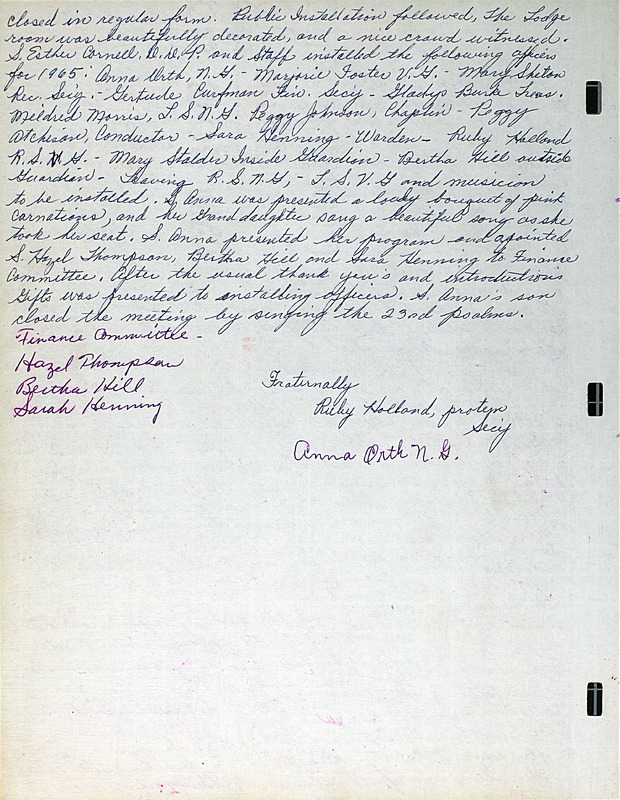 closed in regular form. Public Installation followed, The Lodge
room was beautifully decorated, and a nice crowd witnessed.
S. Esther Cornell, D.D.P. and Staff installed the following officers
for 1965: Anna Orth, N.G. - Marjorie Foster V.G. - Mary
Rec. Secy. - Gertude Curfman Fin. Secy - Gladys Burk Treas.
Mildred Morris, L.S.N.G. Peggy Johnson, Chaplin - Peggy
Atchison, Conductor - Sara Henning - Warden - Ruby Holland
R.S.V.G. - Mary Stalder Inside Guardian - Bertha Hill outside
Guardian - Leaving R.S.N.G, - L.S.V.G and musicion
to be installed. S. Anna was presented a lovely bouquet of pink
carnations, and her Granddaughter sang a beautiful song as she
took her seat. S. Anna presented her program and apointed
S. Hazel Thompson, Bertha Hill and Sara Henning to Finance
Committee, After the usual thank you's and introductions
Gifts was presented to installing officers. S. Anna's son
closed the meeting by singing the 23rd psalms.
Finance Committee -
Hazel Thompson
Bertha Hill
Sarah Henning
Fraternally
Ruby Holland, protem
Secy
Anna Orth N.G.